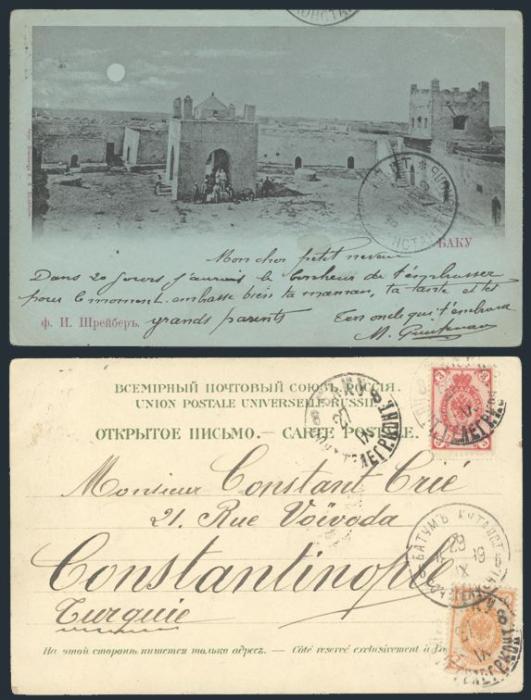 БАКУ
Mon cher petit neveu
Dans 20 jours j'aurais le bonheur de t'embrasser
pour le moment embrasse bien ta maman, ta tante et tes
grands parents
Ton oncle qui t'embrasse
ф. И. Шрейберъ.
M.
ВСЕМІРНЫЙ ПОЧТОВЫЙ СОЮЗЪ. РОССІЯ.
UNION POSTALE UNIVERSELLE. RUSSIE.
ОТКРЫТОЕ ПИСЬМО. — CARTE POSTALE.
Monsieur Constant Crié
21. Rue Voïvoda
Constantinople
Turquie
На этой сторонѣ пишется только адресъ. — Côté réservé exclusivement à
БАКУ
27
IX
БАТУМЪ КУТАИС
29
IX
19
3
3